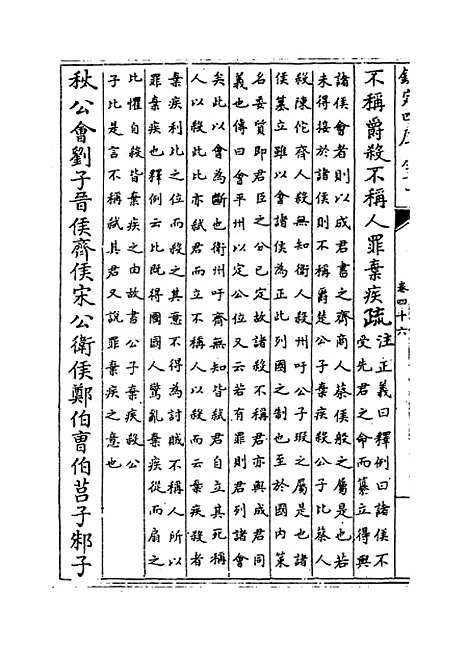 卷四十六
不稱爵殺不稱人罪棄疾疏
注正義曰釋例曰諸侯不
受先君之命而簒立得與
諸侯會者則以成君書之齊商人蔡侯般之屬是也若
未得接於諸侯則不稱爵楚公子棄疾殺公子比蔡人
殺陳佗齊人殺無知衛人殺州吁公子瑕之屬是也諸
侯簒立雖以會諸侯為正此列國之制也至於國内策
名委質即君臣之分已定故諸殺不稱君亦與成君同
義也傳曰會平州以定公位又云若有罪則君列諸會
矣此以會為斷也衛州吁齊無知皆君自立其死稱
人以殺此比亦弑君而立不稱人以殺而云棄疾殺者
棄疾利比之位而殺之其意不得為討賊不稱人所以
罪棄疾也釋例云比既得國國人驚亂棄疾從而扇之
比懼自殺皆棄疾之由故書公子棄疾殺公
子比是言不稱弑其君又說罪棄疾之意也
秋公會劉子晉侯齊侯宋公衛侯鄭伯曹伯莒子邾子